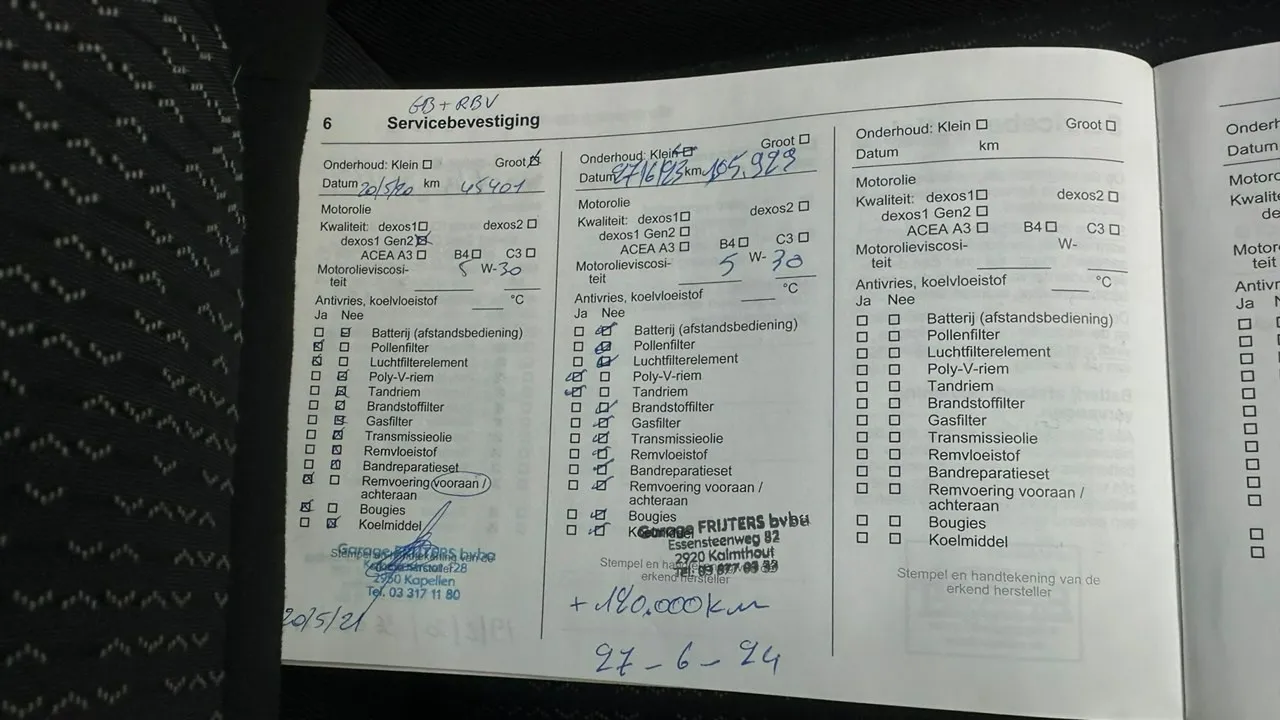 GB + RBV
6 Servicebevestiging
Onderhoud: Klein Groot
Datum 20/5/20 km 45401
Motorolie
Kwaliteit: dexos1 dexos2
dexos1 Gen2
ACEA A3 B4 C3
Motorolieviscosi-
teit 5 W-30
Antivries, koelvloeistof °C
Ja Nee
Batterij (afstandsbediening)
Pollenfilter
Luchtfilterelement
Poly-V-riem
Tandriem
Brandstoffilter
Gasfilter
Transmissieolie
Remvloeistof
Bandreparatieset
Remvoering vooraan /
achteraan
Bougies
Koelmiddel
Garage FRIJTERS bvba
2950 Kapellen
Tel. 03 317 11 80
20/5/21
Onderhoud: Klein Groot
Datum 27/6/23 km 105.923
Motorolie
Kwaliteit: dexos1 dexos2
dexos1 Gen2
ACEA A3 B4 C3
Motorolieviscosi-
teit 5 W-30
Antivries, koelvloeistof °C
Ja Nee
Batterij (afstandsbediening)
Pollenfilter
Luchtfilterelement
Poly-V-riem
Tandriem
Brandstoffilter
Gasfilter
Transmissieolie
Remvloeistof
Bandreparatieset
Remvoering vooraan /
achteraan
Bougies
Garage FRIJTERS bvba
Essensteenweg 82
2920 Kalmthout
Stempel en
erkend hersteller
+ 120.000 km
27-6-24
Onderhoud: Klein Groot
Datum km
Motorolie
Kwaliteit: dexos1 dexos2
dexos1 Gen2
ACEA A3 B4 C3
Motorolieviscosi- W-
teit
Antivries, koelvloeistof °C
Ja Nee
Batterij (afstandsbediening)
Pollenfilter
Luchtfilterelement
Poly-V-riem
Tandriem
Brandstoffilter
Gasfilter
Transmissieolie
Remvloeistof
Bandreparatieset
Remvoering vooraan /
achteraan
Bougies
Koelmiddel
Stempel en handtekening van de
erkend hersteller
Datum
Ja